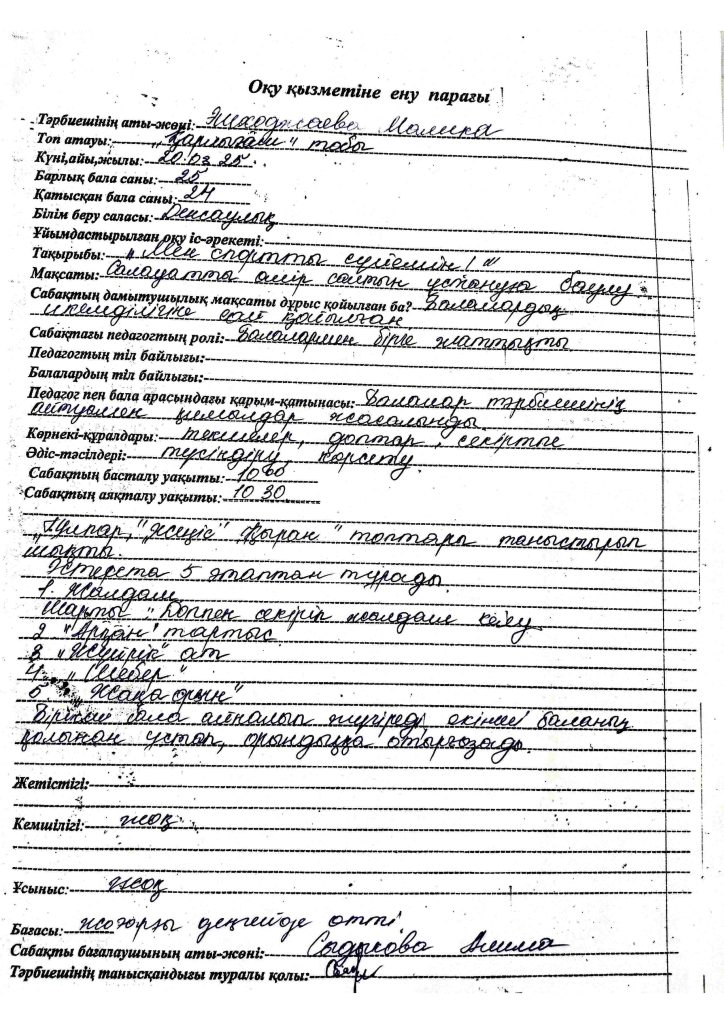 Оқу қызметіне ену парағы
Тәрбиешінің аты-жөні: Малика
Топ атауы: „Қарлығаш" тобы
Күні,айы,жылы: 20.03 25.
Барлық бала саны: 25
Қатысқан бала саны: 24
Білім беру саласы: Денсаулық
Ұйымдастырылған оқу іс-әрекеті:
Тақырыбы: „Мен спортты сүйемін!"
Мақсаты: Салауатты өмір салтын ұстануға баулу.
Сабақтың дамытушылық мақсаты дұрыс қойылған ба? Балалардың
икемділігіне сай қойылған
Сабақтағы педагогтың ролі: Балалармен бірге жаттықты
Педагогтың тіл байлығы:
Балалардың тіл байлығы:
Педагог пен бала арасындағы қарым-қатынасы: Балалар тәрбиешінің
айтуымен қимылдар жасалынды.
Көрнекі-құралдары: текшелер, доптар, секіртпе
Әдіс-тәсілдері: түсіндіру, көрсету.
Сабақтың басталу уақыты: 10 00
Сабақтың аяқталу уақыты: 10 30
„Тұлпар," "Жеңіс" Қыран" топтары таныстырып
шықты.
Эстафета 5 этаптан тұрады.
1. Жалдам
Шарты: Доппен секіріп жалдам келу
2 "Арқан" тартыс
3 „Жүйрік" ат
4. „Мебер"
5. „Жаңа орын"
Бірінші бала айналып жүгіреді, екінші баланың
қолынан ұстап, орындыққа отырғызады.
Жетістігі:
Кемшілігі: жоқ
Ұсыныс: жоқ
Бағасы: жоғарғы деңгейде өтті.
Сабақты бағалаушының аты-жөні: Сыдыкова Алима
Тәрбиешінің танысқандығы туралы қолы: